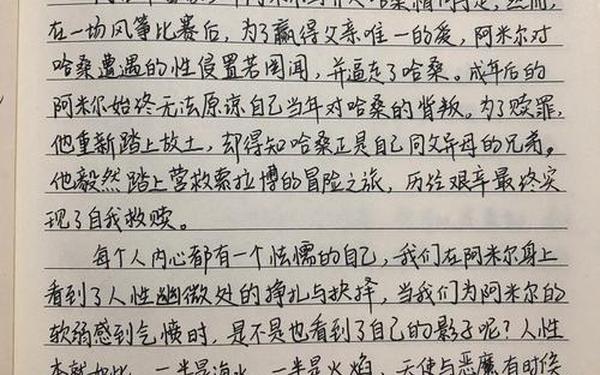 在一场风筝比赛后，为了赢得父亲唯一的爱，阿米尔对
哈桑遭遇的性侵置若罔闻，并逼走了哈桑。成年后的
阿米尔始终无法原谅自己当年对哈桑的背叛。为了赎罪，
他重新踏上故土，却得知哈桑正是自己同父异母的兄弟。
他毅然踏上营救索拉博的冒险之旅，历经艰辛最终实
现了自我救赎。
每个人内心都有一个怯懦的自己，我们在阿米尔身上
看到了人性幽微处的挣扎与抉择，当我们为阿米尔的
软弱感到气愤时，是不是也看到了自己的影子呢？人性
本就如此，一半是海水，一半是火焰，天使与恶魔有时候